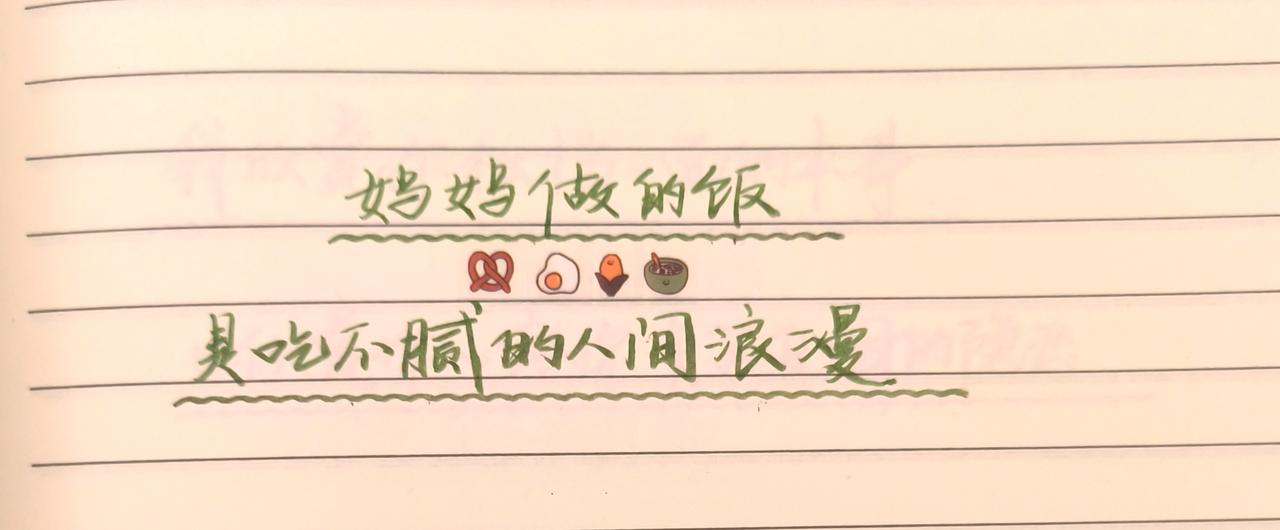 妈妈做的饭
是吃不腻的人间浪漫